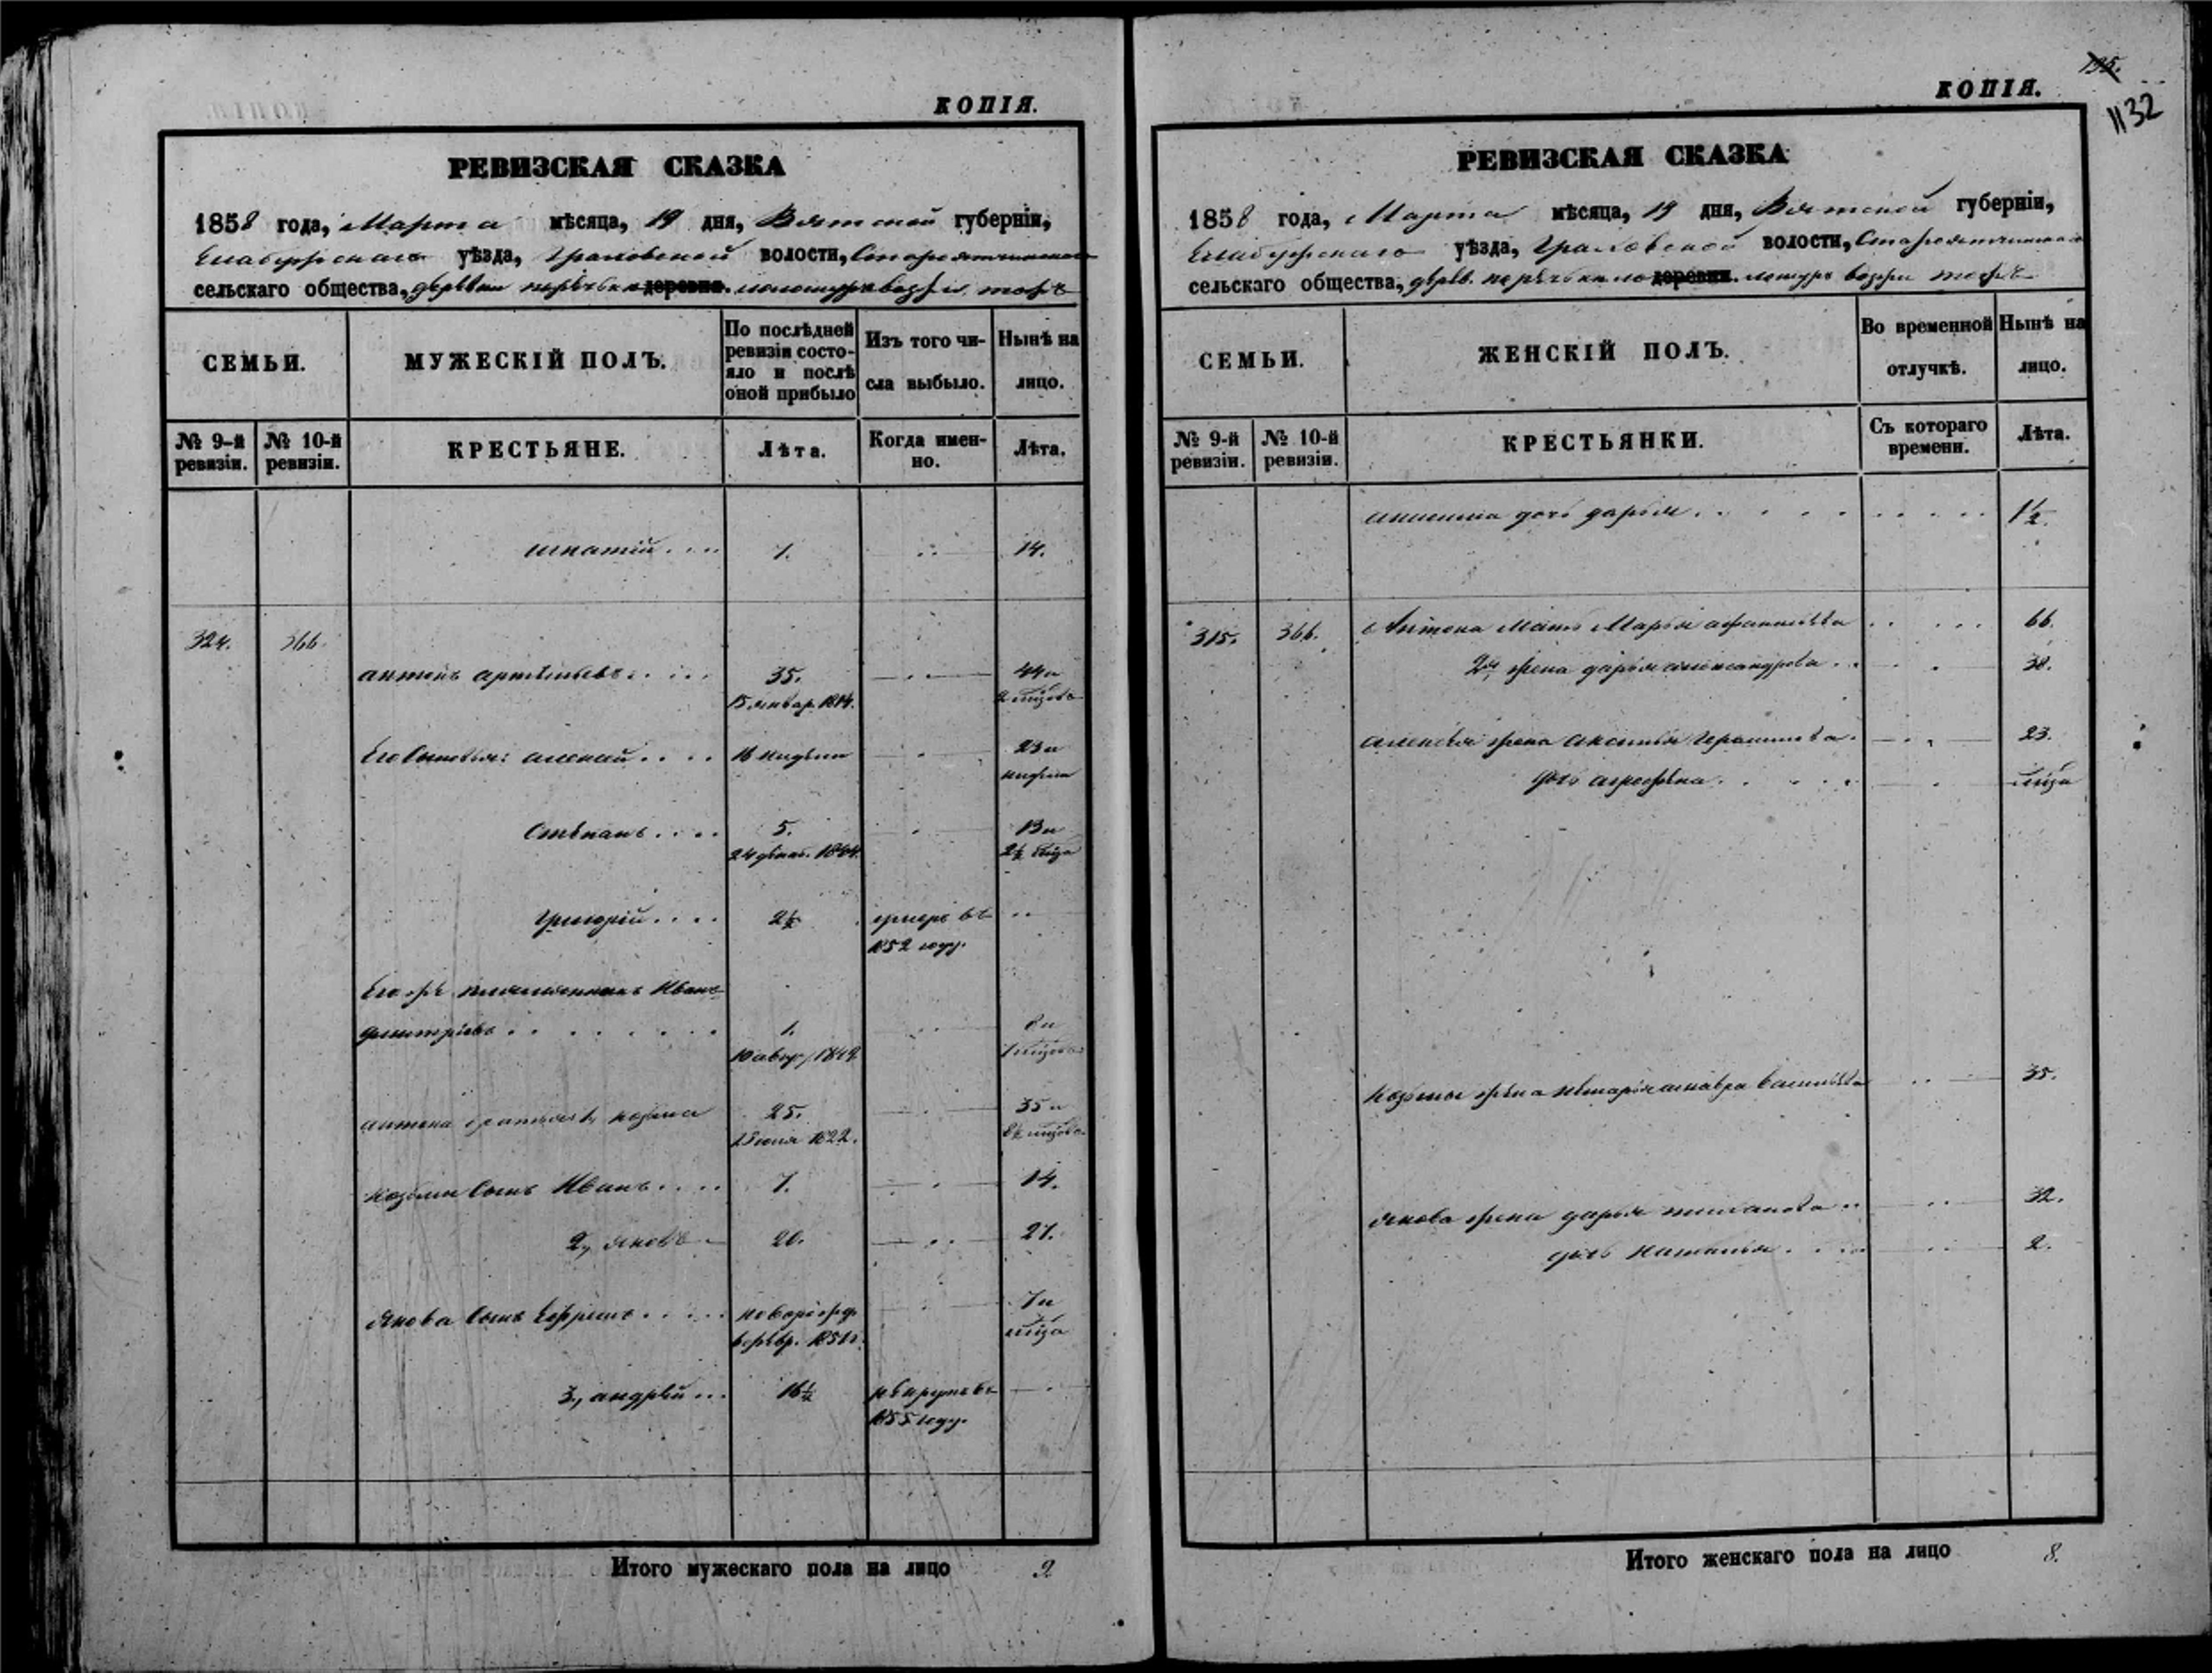 КОПІЯ.
РЕВИЗСКАЯ СКАЗКА
1858 года, Марта мѣсяца, 19 дня, Вятской губерніи,
Елабужскаго уѣзда, Граховской волости,
сельскаго общества, деревни
СЕМЬИ.
МУЖЕСКІЙ ПОЛЪ.
По послѣдней ревизіи состояло и послѣ оной прибыло
Изъ того числа выбыло.
Нынѣ на лицо.
№ 9-й ревизіи.
№ 10-й ревизіи.
КРЕСТЬЯНЕ.
Лѣта.
Когда именно.
Лѣта.
игнатій . . . . 7. 14.
324. 366.
антонъ артемьевъ . . . . 35. 44 и
15 январ. 1814. 2 мѣсѣвъ
Его сыновья: алексѣй . . . . 16 недели 23 и
недели
Степанъ . . . . 5. 13 и
24 декаб. 1844. 2½ мѣсѣца
григорій . . . . 2½ умеръ въ
1852 году.
Его же племянникъ Иванъ
дмитріевъ . . . . . . . 1. 8 и
7 мѣсѣцовъ
антона братья 1, козьма 25. 35 и
1822. 8½ мѣсѣцовъ
козьмы сынъ Иванъ . . . . 7. 14.
2, яковъ 20. 27.
якова сынъ Ефремъ . . . . . новорожд. 7 и
февр. 1851 г. мѣсѣца
3, андрей . . . 16½ рекрутъ въ
1855 году.
Итого мужескаго пола на лицо 9
КОПІЯ.
135.
1132
РЕВИЗСКАЯ СКАЗКА
1858 года, Марта мѣсяца, 19 дня, Вятской губерніи,
Елабужскаго уѣзда, Граховской волости,
сельскаго общества, дерев.
СЕМЬИ.
ЖЕНСКІЙ ПОЛЪ.
Во временной отлучкѣ.
Нынѣ на лицо.
№ 9-й ревизіи.
№ 10-й ревизіи.
КРЕСТЬЯНКИ.
Съ котораго времени.
Лѣта.
дочь дарья . . . 1½.
315. 366. Антона мать Марья афанасьева . . . . 66.
2я, жена дарья александрова . . 38.
алексѣя жена аксинья 23.
дочь агрофена . . . . мѣсѣца
козьмы жена васильева 35.
якова жена дарья . . 32.
дочь наталья . . . . 2.
Итого женскаго пола на лицо 8.